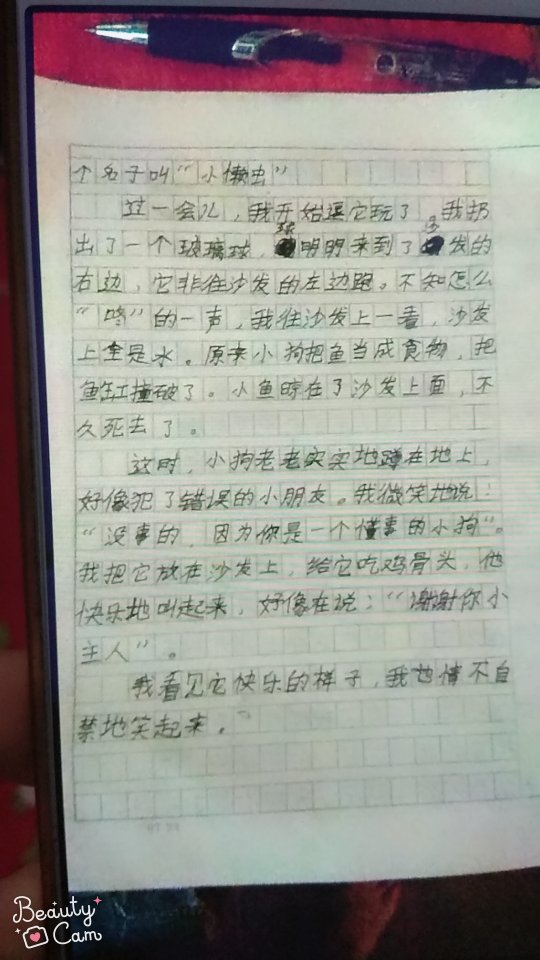 个名子叫“小懒虫”
过一会儿，我开始逗它玩了。我扔
出了一个玻璃球，球明明来到了沙发的
右边，它非往沙发的左边跑。不知怎么
“咚”的一声，我往沙发上一看，沙发
上全是水。原来小狗把鱼当成食物，把
鱼缸撞破了。小鱼晾在了沙发上面，不
久死去了。
这时，小狗老老实实地蹲在地上，
好像犯了错误的小朋友。我微笑地说：
“没事的，因为你是一个懂事的小狗”。
我把它放在沙发上，给它吃鸡骨头，他
快乐地叫起来，好像在说：“谢谢你小
主人”。
我看见它快乐的样子，我也情不自
禁地笑起来。
Beauty
Cam